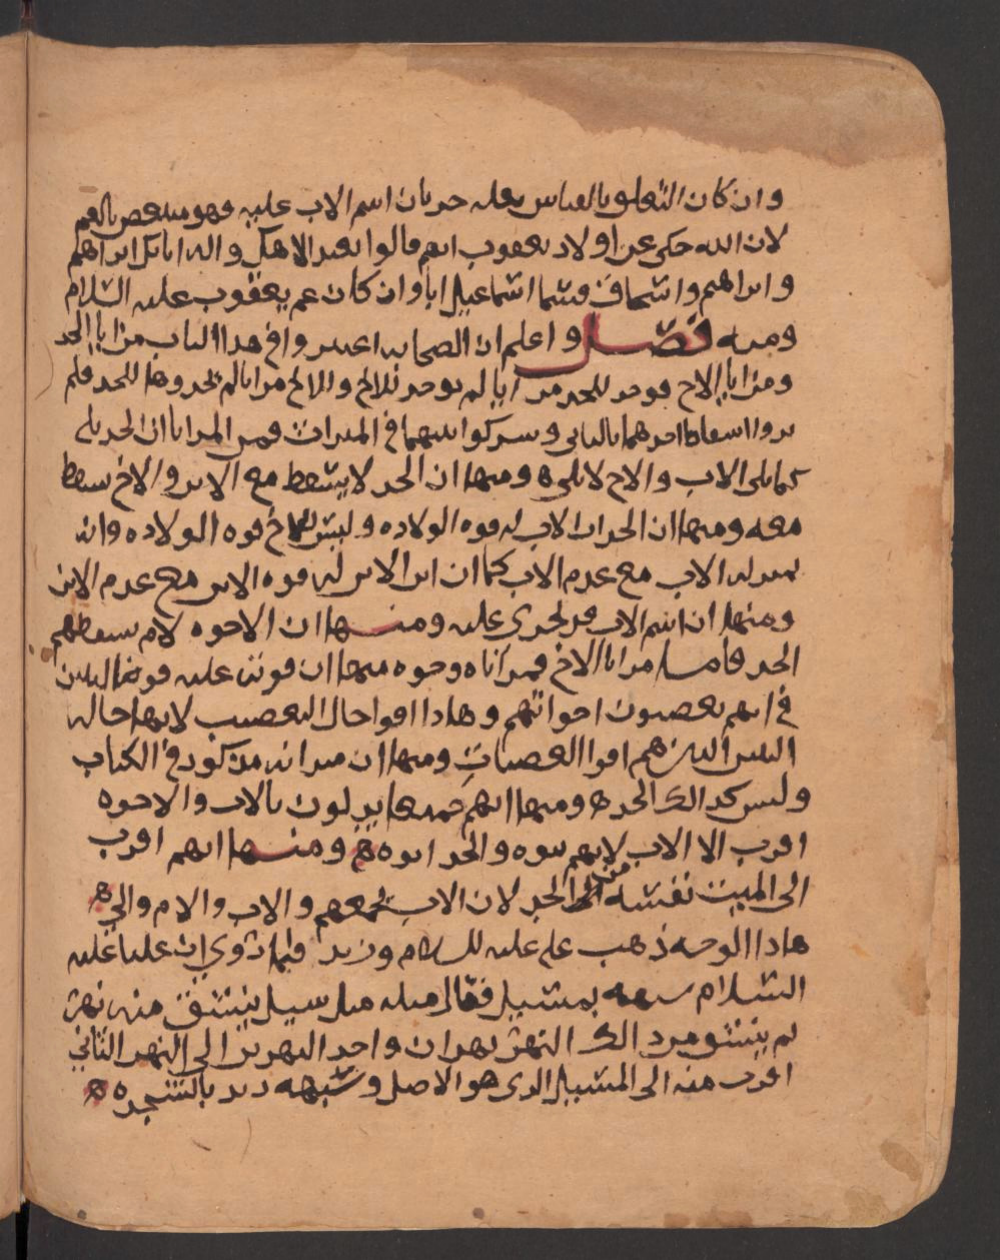 وان كان التعلق بالقياس بعله حريان اسم الاب عليه فهو منتقض بالعم
لان الله حكى عن اولاد يعقوب انهم قالوا نعبد الاهك واله ابايك ابراهيم
وابراهيم واسحاق فسما اسماعيل ابا وان كان عم يعقوب عليه السلام
ومنه فصل واعلم ان الصحابه اعتبروا في هدا الباب مزايا الجد
ومزايا الاخ فوجد للجد مزايا لم توجد للاخ وللاخ مزايا لم يجدوها للجد فلم
يروا اسقاط احدهما بالثاني وشركوا بينهما في الميراث فمن المزايا ان الجد يلي
كما يلي الاب والاخ لا يلي ه ومنها ان الجد لا يسقط مع الابن والاخ يسقط
معه ومنها ان الجد اب الاب له قوه الولاده وليس للاخ قوه الولاده وانه
بمنزله الاب مع عدم الاب كما ان ابن الابن له قوه الابن مع عدم الابن
ومنها ان اسم الاب قد يجري عليه ومنها ان الاخوه لام يسقطهم
الجد فاما مزايا الاخ فمزاياه وجوه منها ان قوتن عليه قوه البنين
في انهم يعصبون اخواتهم وهادا اقوا حال التعصيب لانها حاله
البنين الذين هم اقوا العصبات ومنها ان ميراثه مذكور في الكتاب
وليس كدالك الجد ه ومنها انهم جميعا يدلون بالاب والاخوه
اقرب الا الاب لانهم بنوه والجد ابوه ه ومنها انهم اقرب
الى الميت نفسه من الجد لان الاب يجمعهم والاب والام والي ه
هادا الوجه ذهب علي عليه السلام وزيد فلما روي ان عليا عليه
السلام شبهه بمسيل فقال مثله مثل سيل ينشق منه نهر
ثم ينشق من دالك النهر نهران واحد النهرين الى النهر الثاني
اقرب منه الى المسيل الدي هو الاصل وشبهه زيد بالشجره ه